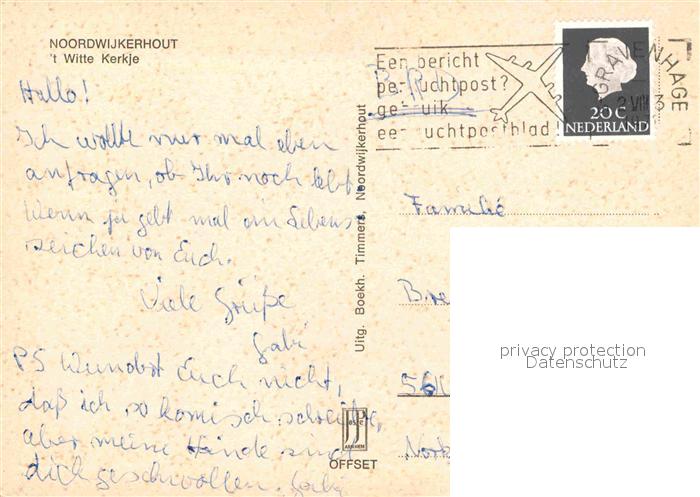 NOORDWIJKERHOUT
't Witte Kerkje
Hallo!
Ich wollte nur mal eben
anfragen, ob Ihr noch lebt.
Wenn ja gebt mal ein Lebens-
zeichen von Euch.
Viele Grüße
Gabi
PS Wundert Euch nicht,
daß ich so komisch schreibe,
aber meine Hände sind
dick geschwollen. Gabi
Uitg. Boekh. Timmers, Noordwijkerhout
JosPé
ARNHEM
OFFSET
Een bericht
per luchtpost?
gebruik
een luchtpostblad!
BRD
'S GRAVENHAGE
2 VIII
20 C
NEDERLAND
Familie
Bre
561
privacy protection
Datenschutz